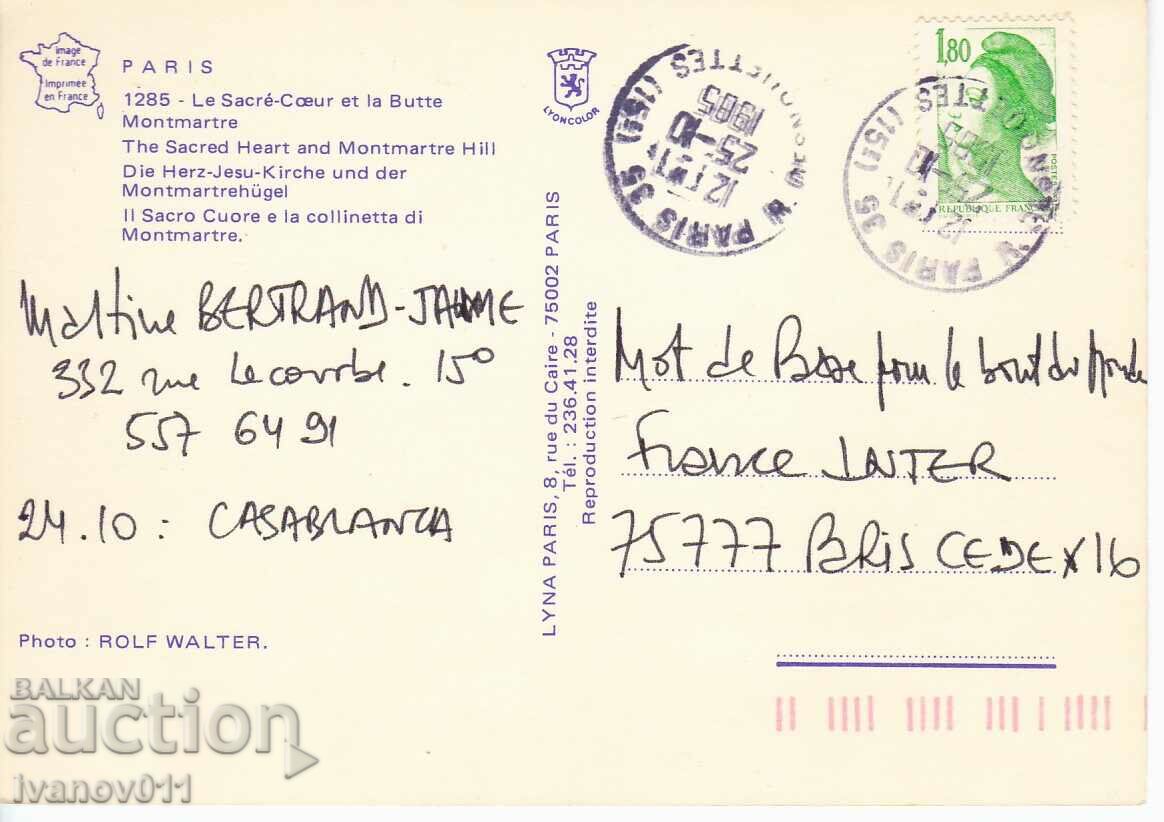 Image
de France
Imprimée
en France
PARIS
1285 - Le Sacré-Cœur et la Butte
Montmartre
The Sacred Heart and Montmartre Hill
Die Herz-Jesu-Kirche und der
Montmartrehügel
Il Sacro Cuore e la collinetta di
Montmartre.
Martine BERTRAND-JAUME
332 rue Lecourbe. 15°
557 64 91
24.10 : CASABLANCA
Photo : ROLF WALTER.
LYONCOLOR
LYNA PARIS, 8, rue du Caire - 75002 PARIS
Tél. : 236.41.28
Reproduction interdite
PARIS 35
(15E)
25-10
1985
1,80
POSTES
REPUBLIQUE FRANÇ
PARIS 35
(15E)
Mot de Passe pour le bout du Monde
France INTER
75777 PARIS CEDEX 16
BALKAN
auction
ivanov011